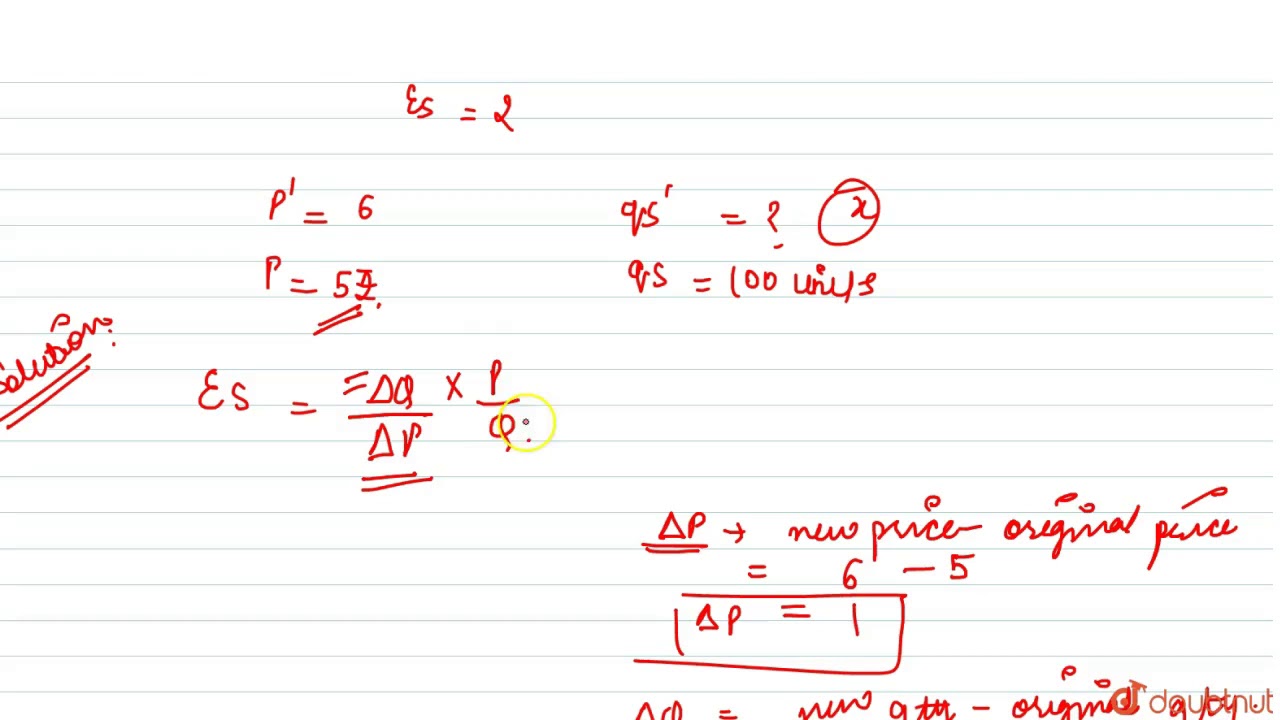 Es = 2
P' = 6
qs' = ? x
P = 5₹.
qs = 100 units
Solution:
Es = = ΔQ / ΔP × P / Q
ΔP → new price - original price
= 6 - 5
ΔP = 1
ΔQ = new qty - original qty.
doubtnut